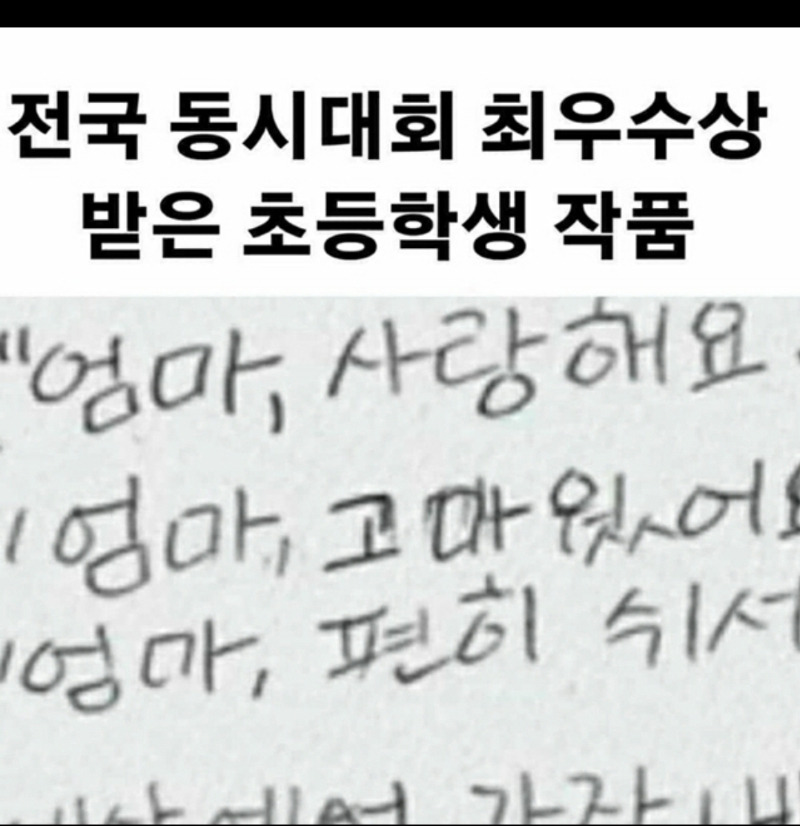 전국 동시대회 최우수상
받은 초등학생 작품
"엄마, 사랑해요
엄마, 고마웠어요
엄마, 편히 쉬서
에서 가장